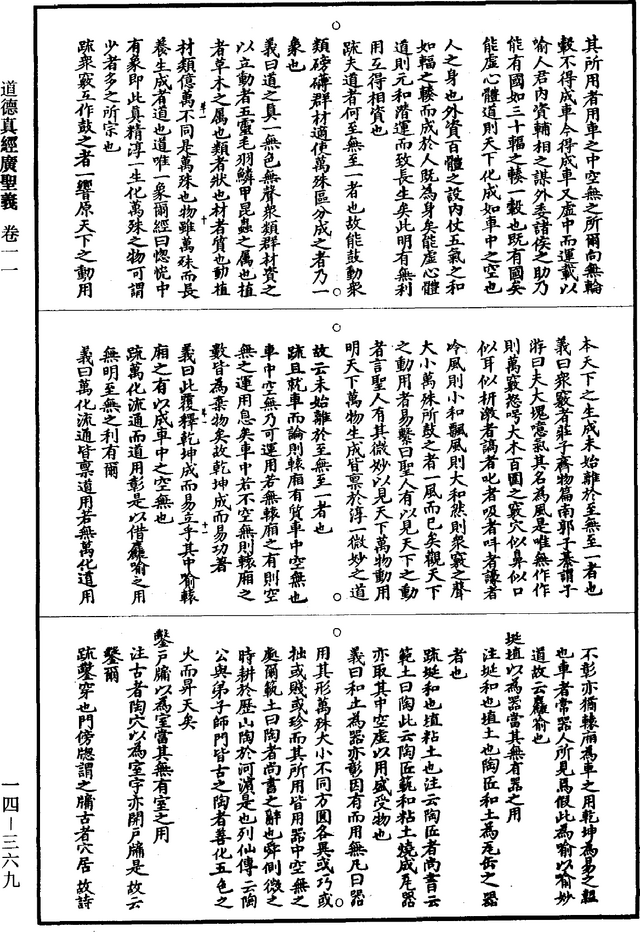 其所用者用車之中空無之所爾向無輪
轂不得成車令得成車又虛中而運載以
喻人君內資輔相之謀外委諸侯之助乃
能有國如三十輻之轃一轂也既有國矣
能虛心體道則天下化成如車中之空也
人之身也外資百體之設內仗五氣之和
如輻之轃而成於人既為身矣能虛心體
道則元和潛運而致長生矣此明有無利
用互得相資也
疏夫道者何至無至一者也故能鼓動衆
類磅礡群材適使萬殊區分成之者乃一
象也
義曰道之具一無色無聲衆類群材資之
以立動者五靈毛羽鱗甲昆蟲之屬也植
者草木之屬也類者狀也材者質也動植
材類億萬不同是萬殊也物雖萬殊而長
養生成者道也道唯一象爾經曰惚恍中
有象即此真精淳一生化萬殊之物可謂
少者多之所宗也
疏衆竅互作鼓之者一響原天下之動用
本天下之生成未始離於至無至一者也
義曰衆竅者莊子齊物篇南郭子綦謂子
游曰夫大塊噫氣其名為風是唯無作作
則萬竅怒呺大木百圍之竅穴似鼻似口
似耳似枅激者謞者叱者吸者叫者譹者
吟風則小和飄風則大和然則衆竅之聲
大小萬殊所鼓之者一風而已矣觀天下
之動用者易繫曰聖人有以見天下之動
者言聖人有其微妙以見天下萬物動用
明天下萬物生成皆稟於淳一微妙之道
故云未始離於至無至一者也
疏且就車而論則轅廂有質車中空無也
車中空無乃可運用若無轅廂之有則空
無之運用息矣車中若不空無則轅廂之
數皆為棄物矣故乾坤成而易功著
義曰此覆釋乾坤成而易立乎其中喻轅
廂之有以成車中之空無也
疏萬化流通而道用彰是以借麤喻之用
無明至無之利有爾
義曰萬化流通皆稟道用若無萬化道用
不彰亦猶轅廂為車之用乾坤為易之韞
也車者常器人所見焉假此為喻以喻妙
道故云麤喻也
埏埴以為器當其無有器之用
注埏和也埴土也陶匠和土為瓦缶之器
者也
疏埏和也埴粘土也注云陶匠者尚書云
範土曰陶此云陶匠範和粘土燒成瓦器
亦取其中空虛以用盛受物也
義曰和土為器亦彰因有而用無凡曰器
用其形萬殊大小不同方圓各異或巧或
拙或賤或珍而其所用皆用器中空無之
處爾範土曰陶者尚書之辭也舜側微之
時耕於歷山陶於河濱是也列仙傳云陶
公與弟子師門皆古之陶者善化五色之
火而昇天矣
鑿戶牖以為室當其無有室之用
注古者陶穴以為室宇亦開戶牖是故云
鑿爾
疏鑿穿也門傍牕謂之牖古者穴居故詩
道德真經廣聖義 卷一一
一四—三六九